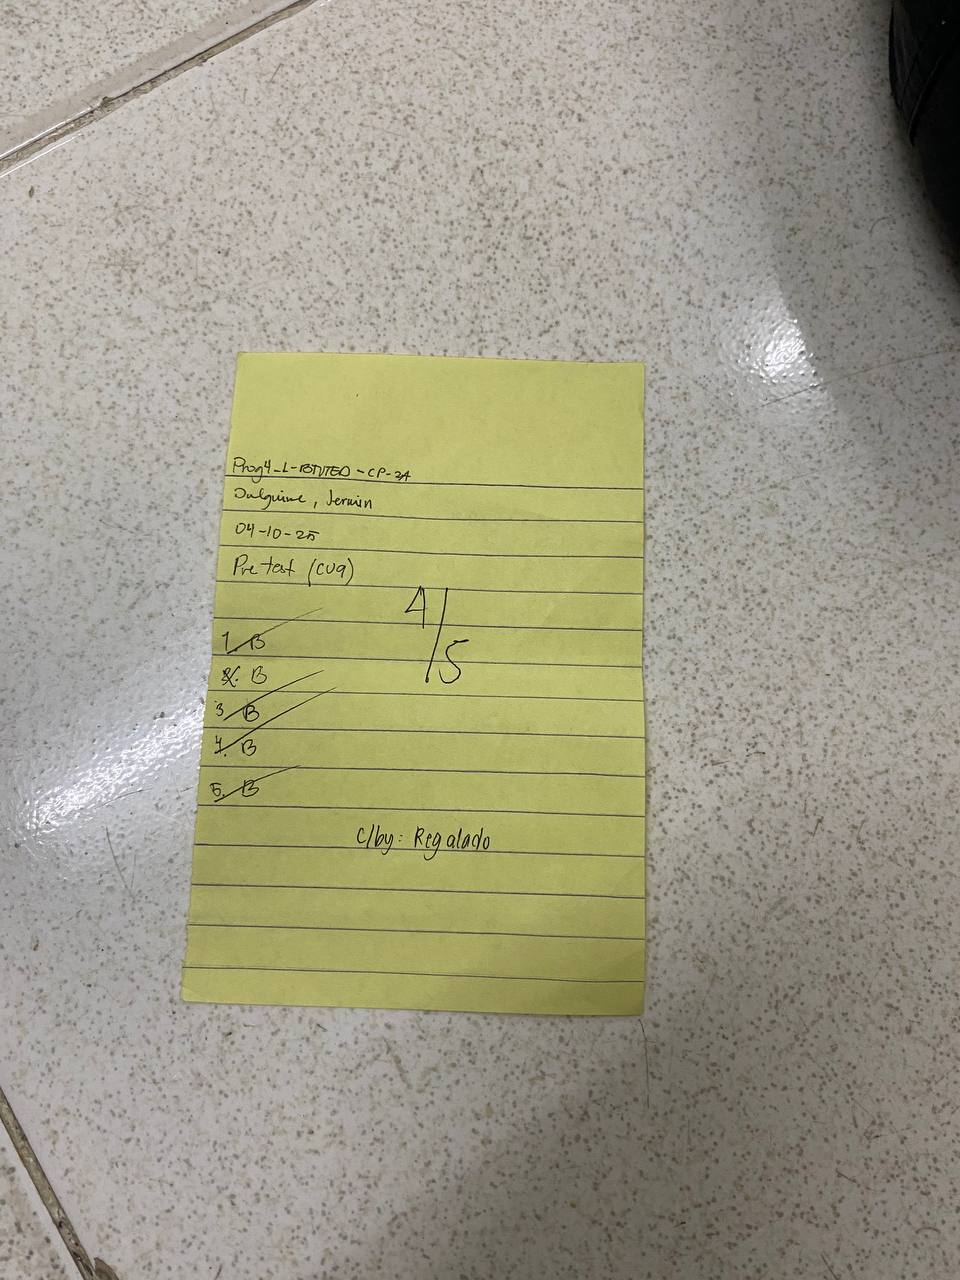 Prog4_L-BTVTED-CP-2A
Dulguime, Jerwin
04-10-25
Pre test (CU9)
4/5
1. B
2. B
3. B
4. B
5. B
c/by: Regalado